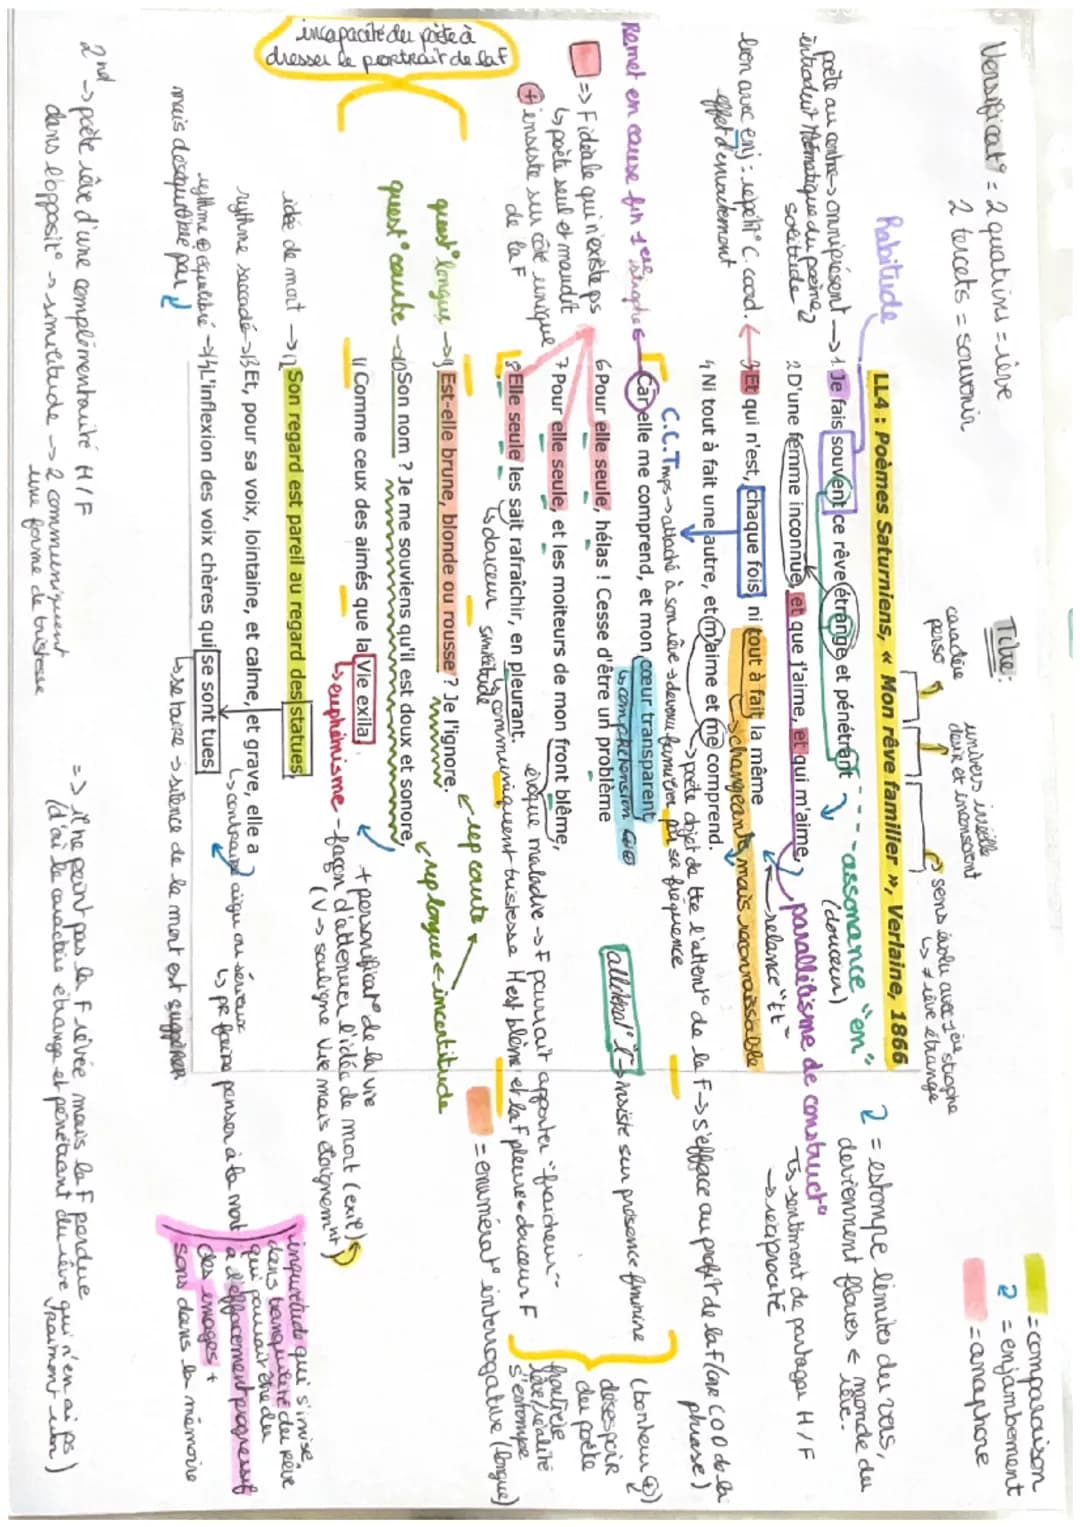 Versificat° = 2 quatrains = rêve
2 tercets = souvenir
Titre :
caractère perso
univers irréelle
doux et inconscient
sens évolu avec 1ère strophe
↳ ≠ rêve étrange
= comparaison
2 = enjambement
= anaphore
habitude
LL4 : Poèmes Saturniens, « Mon rêve familier », Verlaine, 1866
poète au centre → omniprésent →
introduit thématique du poème 2
solitude
1. Je fais souvent ce rêve étrange et pénétrant
---assonance "en"
(douceur)
2 = estompe limites du vers,
deviennent floues ← monde du rêve.
2. D'une femme inconnue, et que j'aime, et qui m'aime,
parallélisme de construct°
↳ sentiment de partage H/F
→ réciprocité
relance "et"
lien avec enj : répétit° C. coord.
effet d'envoutement
3 Et qui n'est, chaque fois, ni tout à fait la même
changeante, mais reconnaissable
4 Ni tout à fait une autre, et m'aime et me comprend.
→ poète objet de tte l'attent° de la F → s'efface au profit de la F (car COD de la phrase)
C.C.Tmps → attaché à son rêve → devenu familier par sa fréquence
Remet en cause fin 1ère strophe
Car elle me comprend, et mon cœur transparent
↳ compréhension
6 Pour elle seule, hélas ! Cesse d'être un problème
allitérat° "l" → insiste sur présence féminine
(bonheur +)
désespoir
du poète
=> F idéale qui n'existe ps
↳ poète seul et maudit
+ insiste sur côté unique
de la F
7 Pour elle seule, et les moiteurs de mon front blême,
évoque maladie → F pourrait apporter "fraicheur"
8 Elle seule les sait rafraîchir, en pleurant.
↳ douceur
similitude
↳ communiquent tristesse H est blême et la F pleure ← douceur F
frontière
rêve/réalité
s'estompe
incapacité du poète à
dresser le portrait de la F
quest° longue →
9 Est-elle brune, blonde ou rousse ? Je l'ignore.
← rép courte
= énumérat° interrogative (longue)
quest° courte →
10 Son nom ? Je me souviens qu'il est doux et sonore,
← rép longue ← incertitude
11 Comme ceux des aimés que la Vie exila.
+ personnificat° de la vie
↳ euphémisme - façon d'atténuer l'idée de mort (exil)
(V → souligne vie mais éloignemnt)
idée de mort →
12 Son regard est pareil au regard des statues,
rythme saccadé →
13 Et, pour sa voix, lointaine, et calme, et grave, elle a
↳ contraire aigu ou sérieux
↳ pr faire penser à la mort
rythme + équilibré →
14 L'inflexion des voix chères qui se sont tues.
mais déséquilibré par 2
↳ se taire → silence de la mort est suggérer
inquiétude qui s'imise
dans tranquillité du rêve
qui pourrait être du
à l'effacement progressif
des images +
sons dans la mémoire
2nd → poète rêve d'une complémentarité H/F
dans l'opposit° → similitude → 2 communiquent
une forme de tristesse
=> il ne peint pas la F rêvée mais la F perdue
(d'où le caractère étrange et pénétrant du rêve qui n'en ai ps
vraiment un)